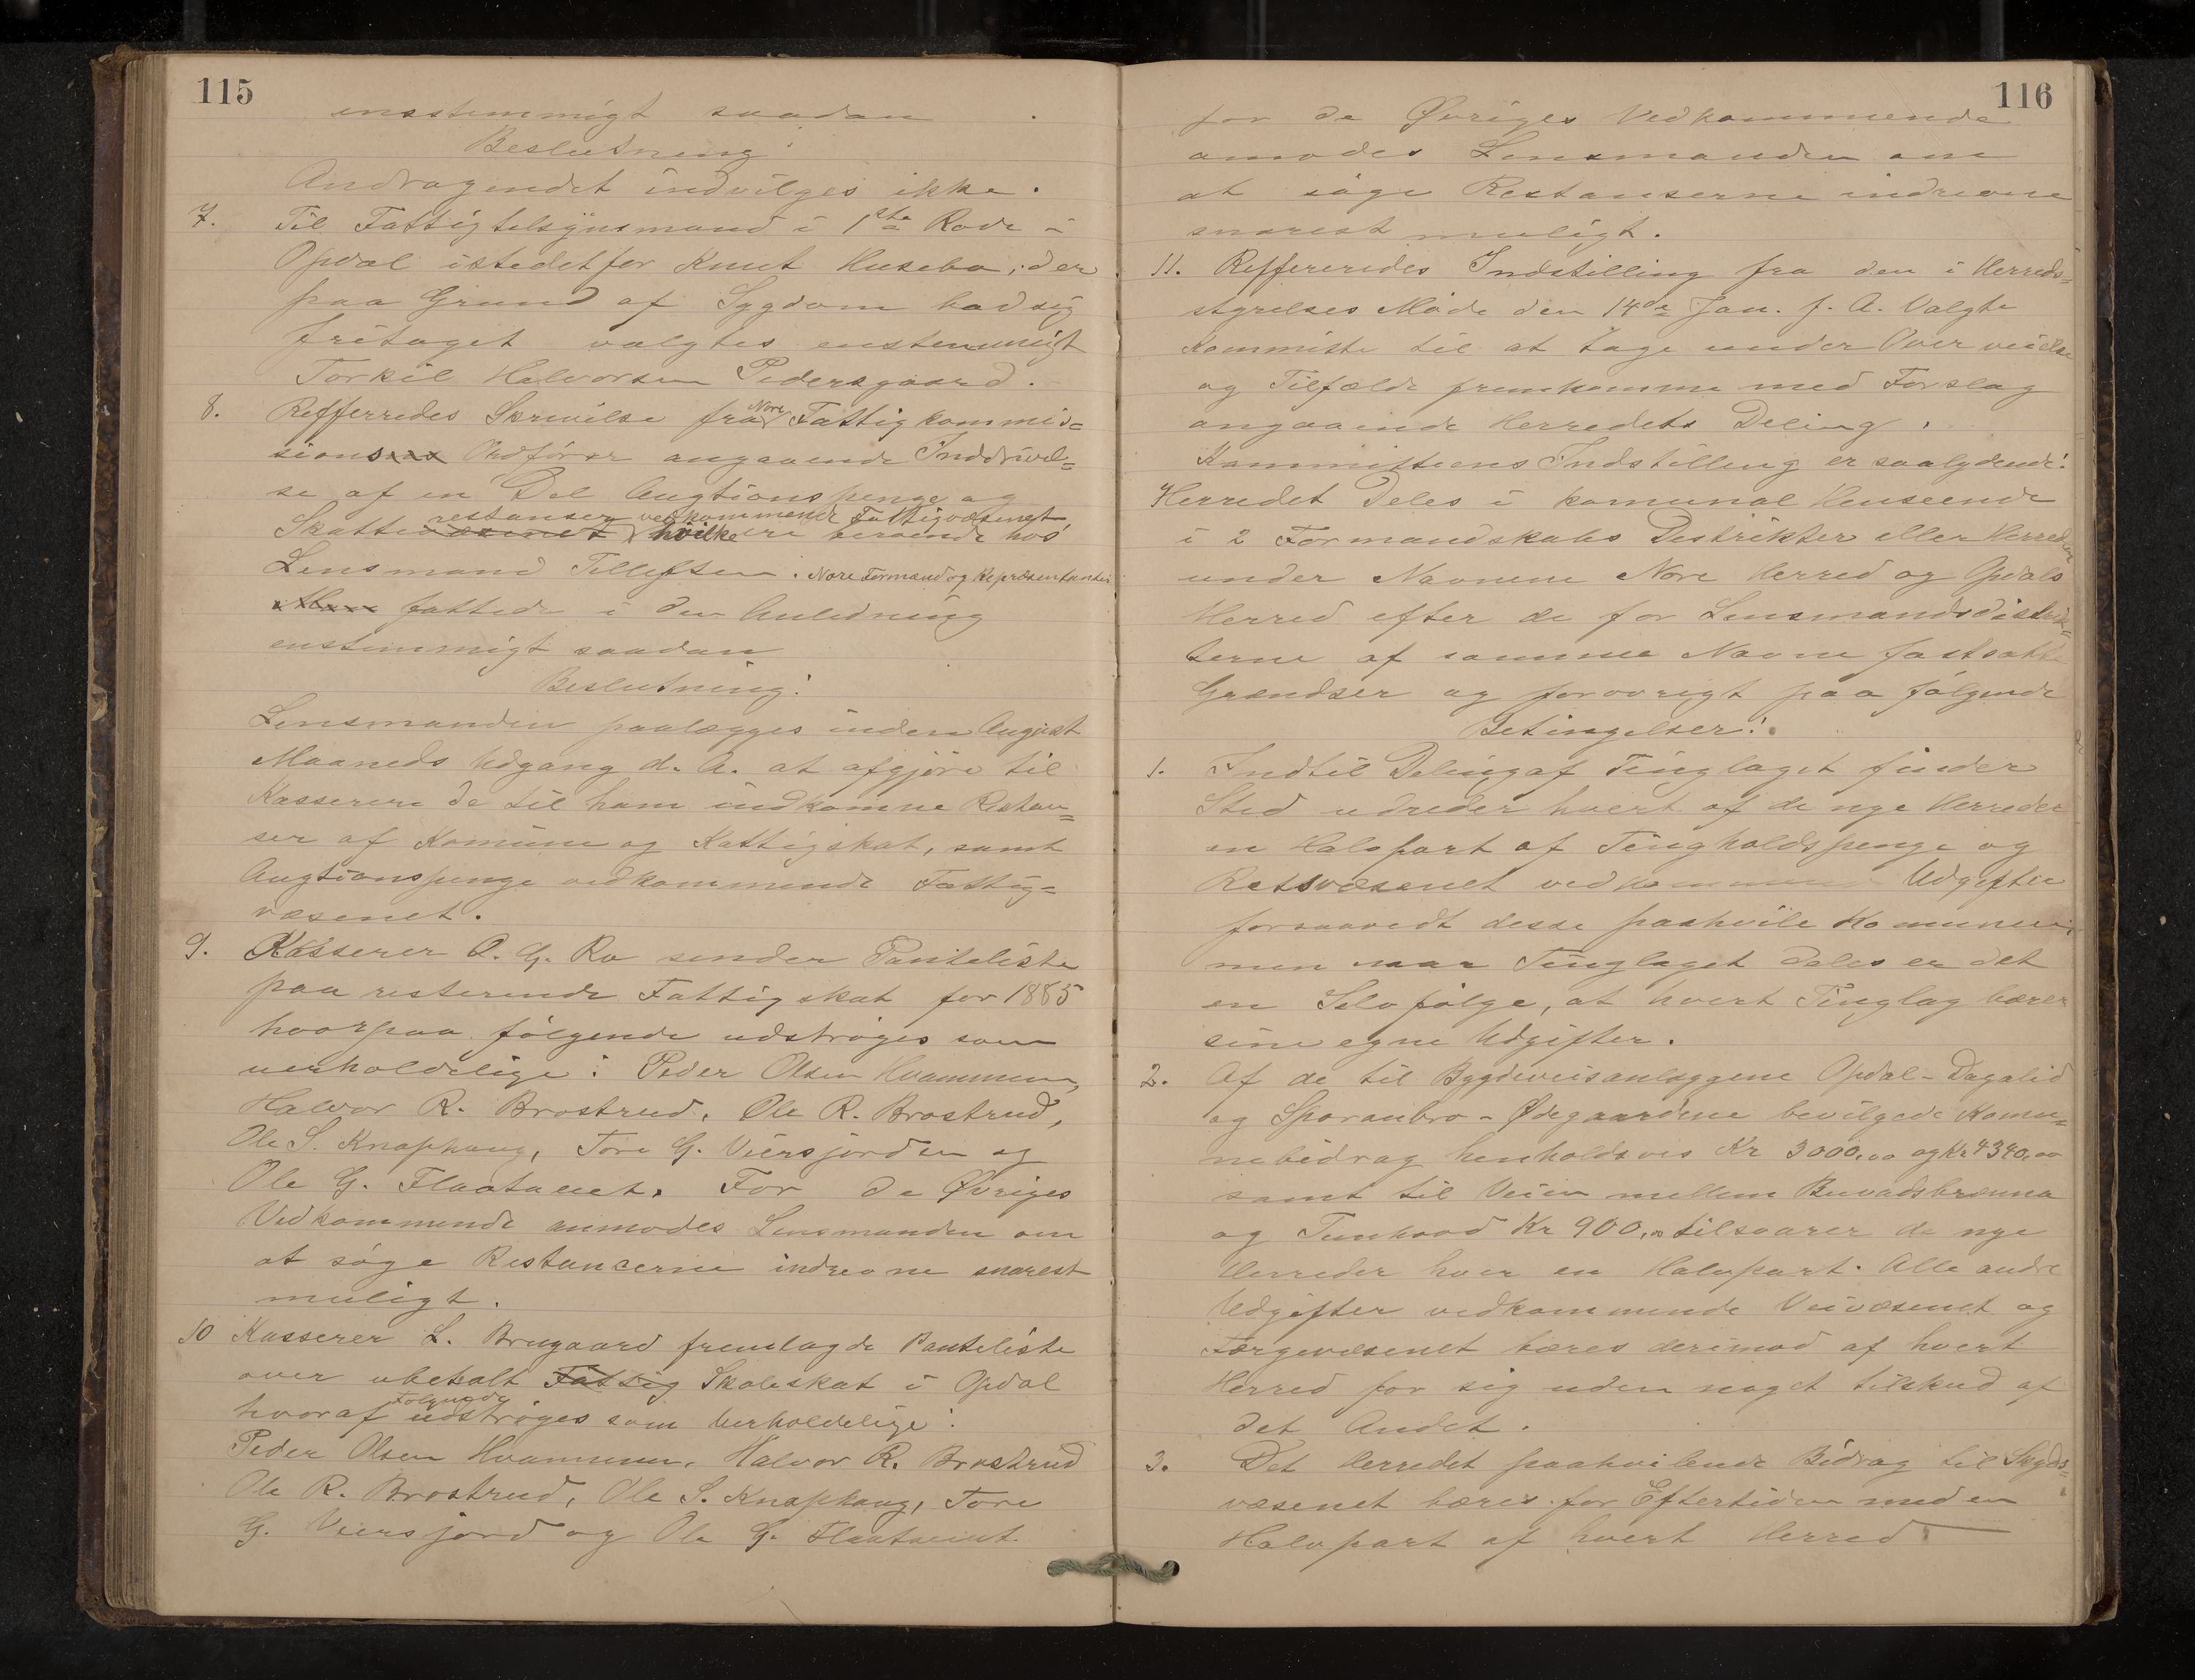 115
ensstemmigt saadan
Beslutning:
Andragendet indvilges ikke.
7. Til Fattigtilsynsmand i 1ste Rode i
Opdal istedetfor Knut Husebø, der
paa Grund af Sygdom bad sig
fritaget valgtes enstemmigt
Torkil Halvorsen Pedersgaard.
8. Refferredes Skrivelse fra Nore Fattigkommis=
sions Ordfører angaaende Inddrivel=
se af en Del Augtionspenge og
restanser vedkommende Fattigvæsenet
Skatte hvilke ere beroende hos
Lensmand Tillefsen. Nore Formænd og Repræsentanter
fattede i den Anledning
enstimmigt saadan
Beslutning:
Lensmanden paalægges inden August
Maaneds Udgang d. A. at afgjøre til
Kasserere de til ham indkomne Restan=
ser af Komune og Fattigskat, samt
Augtionspenge vedkommende Fattig=
væsenet.
9. Kasserer O. G. Ro sender Panteliste
paa resterende Fattigskat for 1885
hvorpaa følgende udstrøges som
uerholdelige: Peder Olsen Hvammen,
Halvor R. Brostrud, Ole R. Brostrud,
Ole S. Knaphaug, Tore G. Viersjorden og
Ole G. Flaatanet. For de Øvriges
Vedkommende anmodes Lensmanden om
at søge Restancerne indrevne snarest
muligt.
10 Kasserer L. Brugaard fremlagde Panteliste
over ubetalt Fattig Skoleskat i Opdal
Følgende
hvoraf udstrøges som Uerholdelige:
Peder Olsen Hvammen, Halvor R. Brostrud
Ole R. Brostrud, Ole S. Knaphaug, Tore
G. Viersjord og Ole G. Flaatanet.
116
for de Øvriges Vedkommende
anmodes Lensmanden om
at søge Restanserne indrevne
snarest muligt.
11. Reffereredes Indstilling fra den i Herreds=
styrelses Møde den 14de Jan. f. A. Valgte
Kommitte til at tage under Overveielse
og Tilfælde fremkomme med Forslag
angaaende Herredets Deling.
Kammitteens Indstilling er saalydende:
Herredet Deles i komunal Henseende
i 2 Formandskabs Destrikter eller Herreder
under Navnene Nore Herred og Opdals
Herred efter de for Lensmandsdistrik=
terne af samme Navne fastsatte
Grændser og forøvrigt paa følgende
Betingelser:
1. Indtil Deling af Tinglaget finder
Sted udreder hvert af de nye Herreder
en Halvpart af Tingholdspenge og
Retsvæsenet vedkommende Udgifter
forsaavidt desse paahvile Komunen,
men naar Tinglaget deles er det
en Selvfølge, at hvert Tinglag bærer
sine egne Udgifter.
2. Af de til Bygdeveisanlæggene Opdal-Dagalid
og Sporanbro-Ødegaardene bevilgede Komu=
nebidrag henholdsvis Kr 3000,00 og Kr 4340,00
samt til Veien mellem Buvadsbrænna
og Tunhovd Kr 900,00 tilsvarer de nye
Herreder hver en Halvpart. Alle andre
Udgifter vedkommende Veivæsenet og
Færgevæsenet bæres derimod af hvert
Herred for sig uden noget tilskud af
det Andet.
3. Det Herredet paahvilende Bidrag til Skyds=
væsenet bæres for Eftertiden med en
Halvpart af hvert Herred